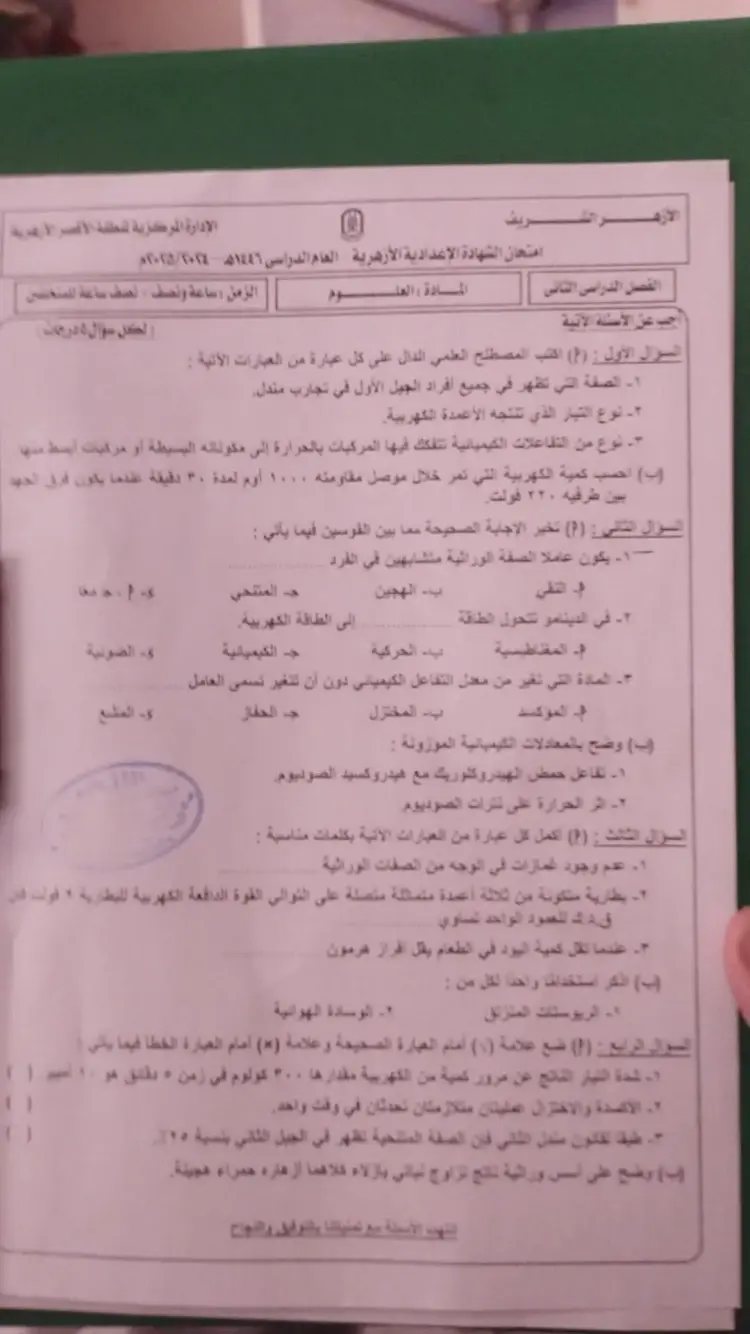 الأزهــــر الشـــــريف
الإدارة المركزية لمنطقة الأقصر الأزهرية
امتحان الشهادة الإعدادية الأزهرية العام الدراسي ١٤٤٦هـ - ٢٠٢٤/٢٠٢٥م
الفصل الدراسي الثاني
المــادة : العلـــــوم
الزمن : ساعة ونصف - نصف ساعة للمتحنين
أجب عن الأسئلة الآتية
( لكل سؤال ٥ درجات )
السؤال الأول : (أ) اكتب المصطلح العلمي الدال على كل عبارة من العبارات الآتية :
١- الصفة التي تظهر في جميع أفراد الجيل الأول في تجارب مندل.
٢- نوع التيار الذي تنتجه الأعمدة الكهربية.
٣- نوع من التفاعلات الكيميائية تتفكك فيها المركبات بالحرارة إلى مكوناته البسيطة أو مركبات أبسط منها
(ب) احسب كمية الكهربية التي تمر خلال موصل مقاومته ١٠٠٠ أوم لمدة ٣٠ دقيقة عندما يكون فرق الجهد
بين طرفيه ٢٢٠ فولت.
السؤال الثاني : (أ) تخير الإجابة الصحيحة مما بين القوسين فيما يأتي :
١- يكون عاملا الصفة الوراثية متشابهين في الفرد ..............
أ- النقي ب- الهجين جـ- المتنحي د- أ ، جـ معا
٢- في الدينامو تتحول الطاقة .............. إلى الطاقة الكهربية.
أ- المغناطيسية ب- الحركية جـ- الكيميائية د- الضوئية
٣- المادة التي تغير من معدل التفاعل الكيميائي دون أن تتغير تسمى العامل ..............
أ- المؤكسد ب- المختزل جـ- الحفاز د- المشع
(ب) وضح بالمعادلات الكيميائية الموزونة :
١- تفاعل حمض الهيدروكلوريك مع هيدروكسيد الصوديوم.
٢- اثر الحرارة على نترات الصوديوم.
السؤال الثالث : (أ) أكمل كل عبارة من العبارات الآتية بكلمات مناسبة :
١- عدم وجود غمازات في الوجه من الصفات الوراثية ..............
٢- بطارية متكونة من ثلاثة أعمدة متماثلة متصلة على التوالي القوة الدافعة الكهربية للبطارية ٩ فولت فإن
ق.د.ك للعمود الواحد تساوي ..............
٣- عندما تقل كمية اليود في الطعام يقل افراز هرمون ..............
(ب) اذكر استخدامًا واحدًا لكل من :
١- الريوستات المنزلق ٢- الوسادة الهوائية
السؤال الرابع : (أ) ضع علامة (√) أمام العبارة الصحيحة وعلامة (×) أمام العبارة الخطأ فيما يأتي :
١- شدة التيار الناتج عن مرور كمية من الكهربية مقدارها ٣٠٠ كولوم في زمن ٥ دقائق هو ١٠ أمبير ( )
٢- الأكسدة والاختزال عمليتان متلازمتان تحدثان في وقت واحد. ( )
٣- طبقا لقانون مندل الثاني فإن الصفة المتنحية تظهر في الجيل الثاني بنسبة ٢٥٪. ( )
(ب) وضح على أسس وراثية ناتج تزاوج نباتي بازلاء كلاهما أزهاره حمراء هجينة.
انتهت الأسئلة مع تمنياتنا بالتوفيق والنجاح